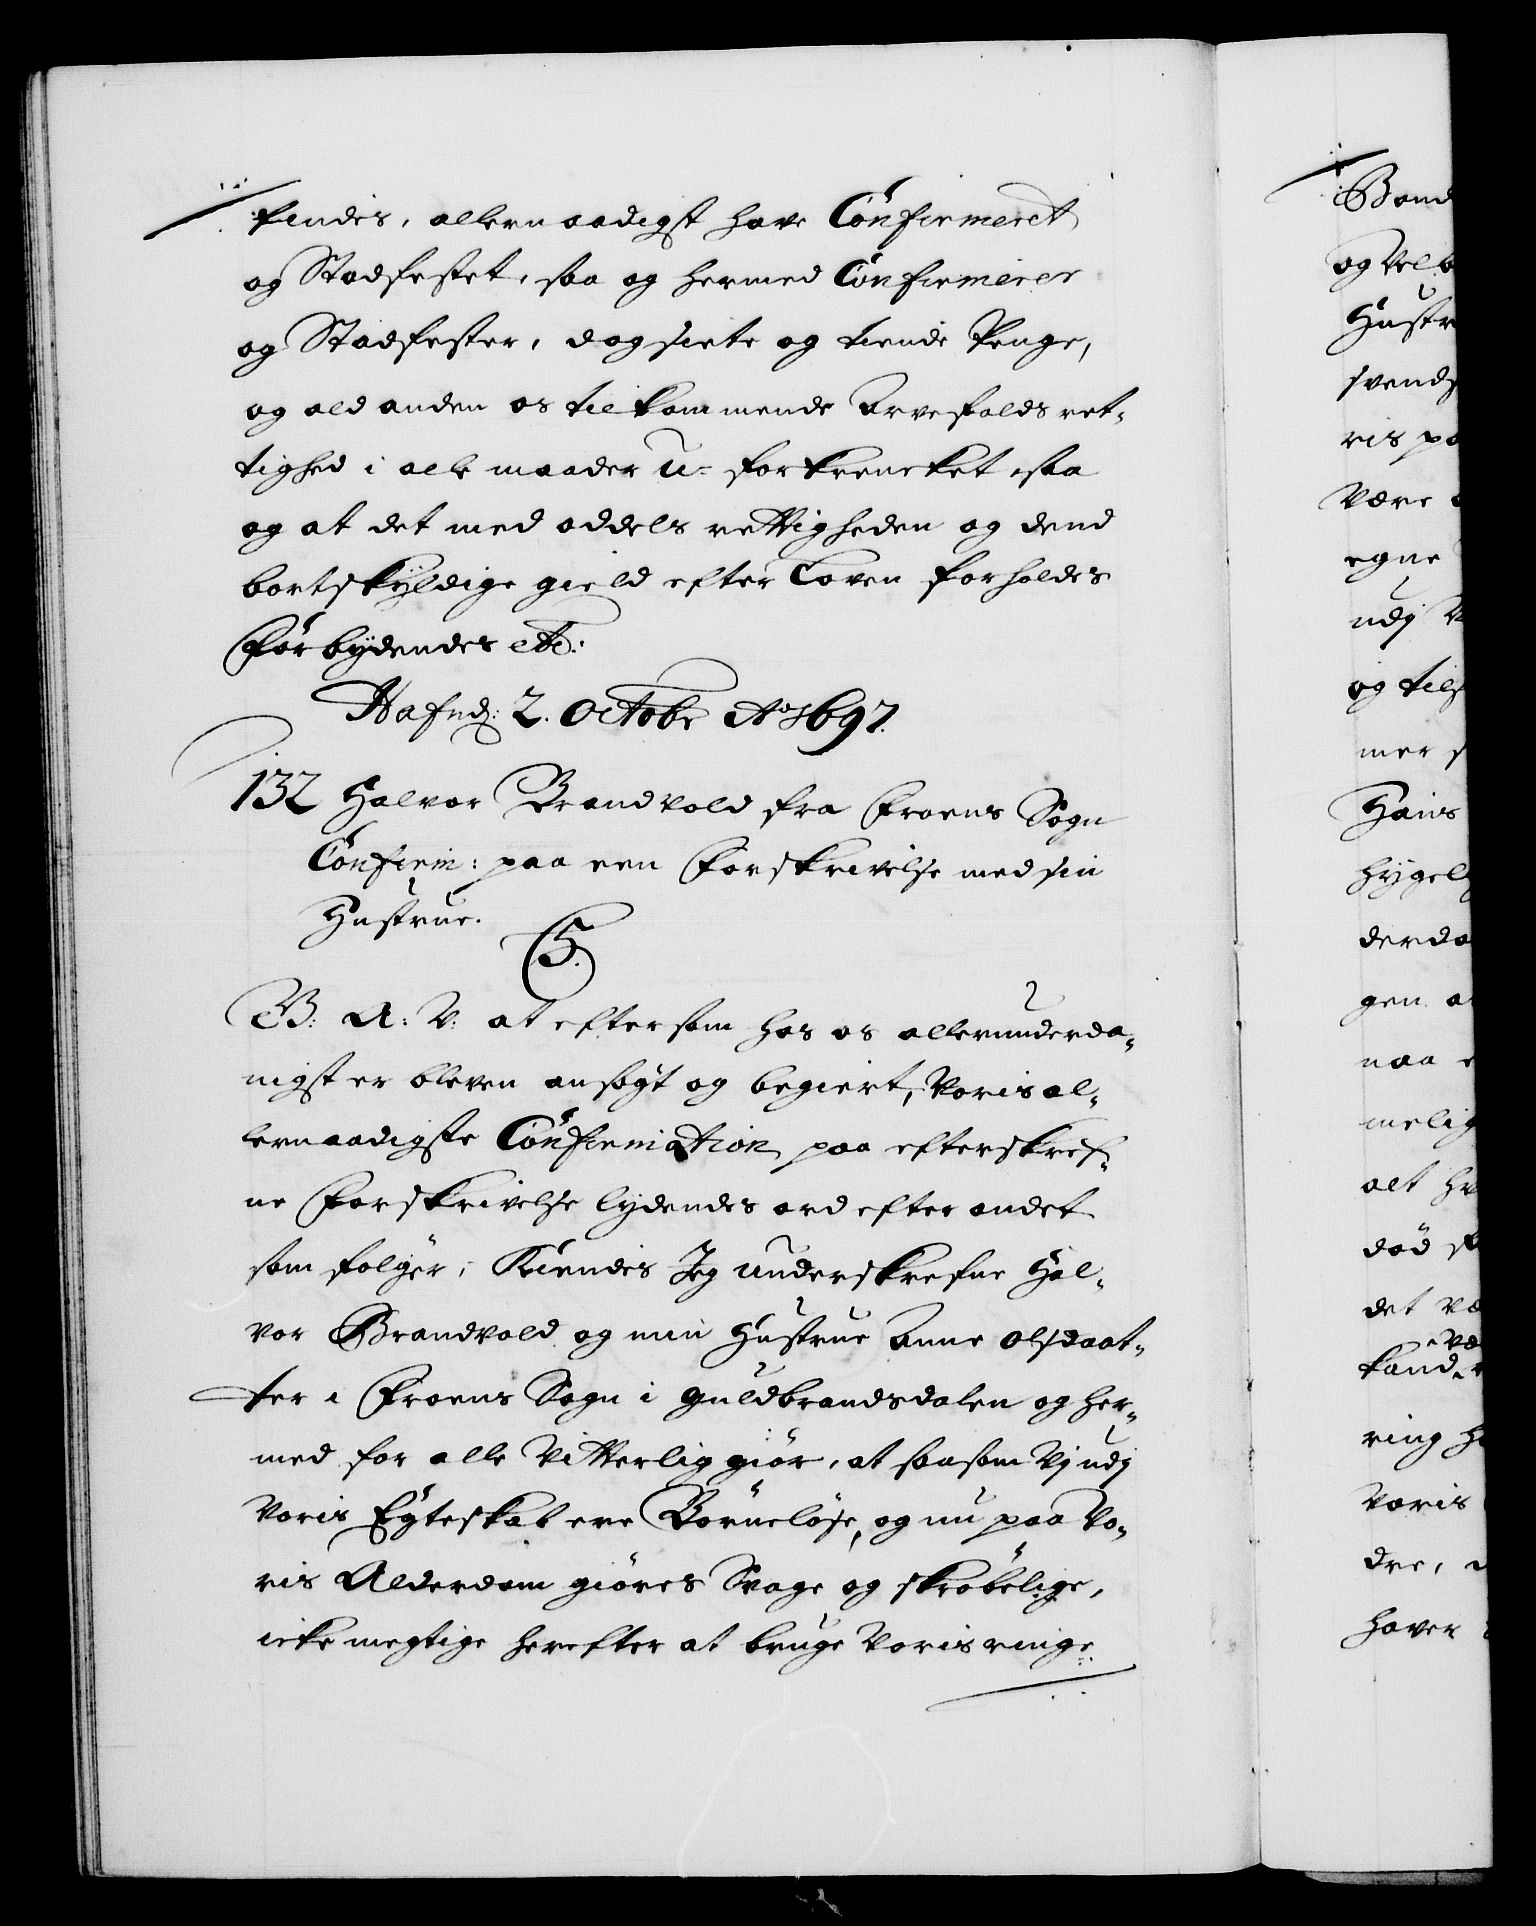 findes, allernaadigst have Confirmeret
og Stadfestet, saa og hermed Confirmerer
og Stadfester, dog siete og tiende Penge,
og ald anden os tilkommende Arvefalds ret-
tighed i alle maader U-forkrencket, saa
og at det med oddels rettigheden og dend
bortskÿldige gield efter Loven forholdes
Forbÿdendes etc:
Hafnd: 2. Octobr Ao 1697.
132 Halvor Brandvold fra Froens Sogn
Confirm: paa een Forskrivelse med sin
Hustrue.
C5.
G: A: V: at eftersom hos os allerunderda-
nigst er bleven ansøgt og begiert, Voris al-
lernaadigste Confirmation paa efterskref-
ne Forskrivelse lydendes ord efter andet
som følger; Kiendes Jeg underskrefne Hal-
vor Brandvold og min Hustrue Anne Olsdaat-
ter i Froens Sogn i Guldbrandsdalen og her-
med for alle Vitterlig giør, at saasom Vj udj
Voris Egteskab ere Børneløse, og nu paa Vo-
ris Alderdom giøres Svage og skrøbelige,
icke megtige herefter at bruge Voris ringe
Bond
og Velb
Hustr
svends
ris pa
Være
egne
udj V
og tils
mer s
Hans
hÿgel
derda
gen a
naa e
melig
alt hv
død
det væ
kand
ring h
Voris
dre,
haver